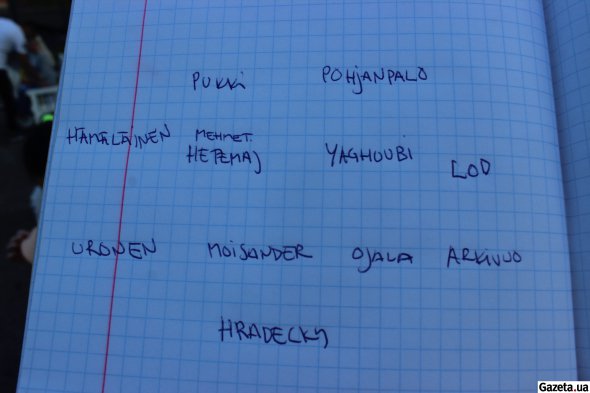 PUKKI POHJANPALO
HÄMÄLÄINEN MEHMET. HETEMAJ YAGHOUBI LOD
URONEN MOISANDER OJALA ARKIVUO
HRADECKY
Gazeta.ua